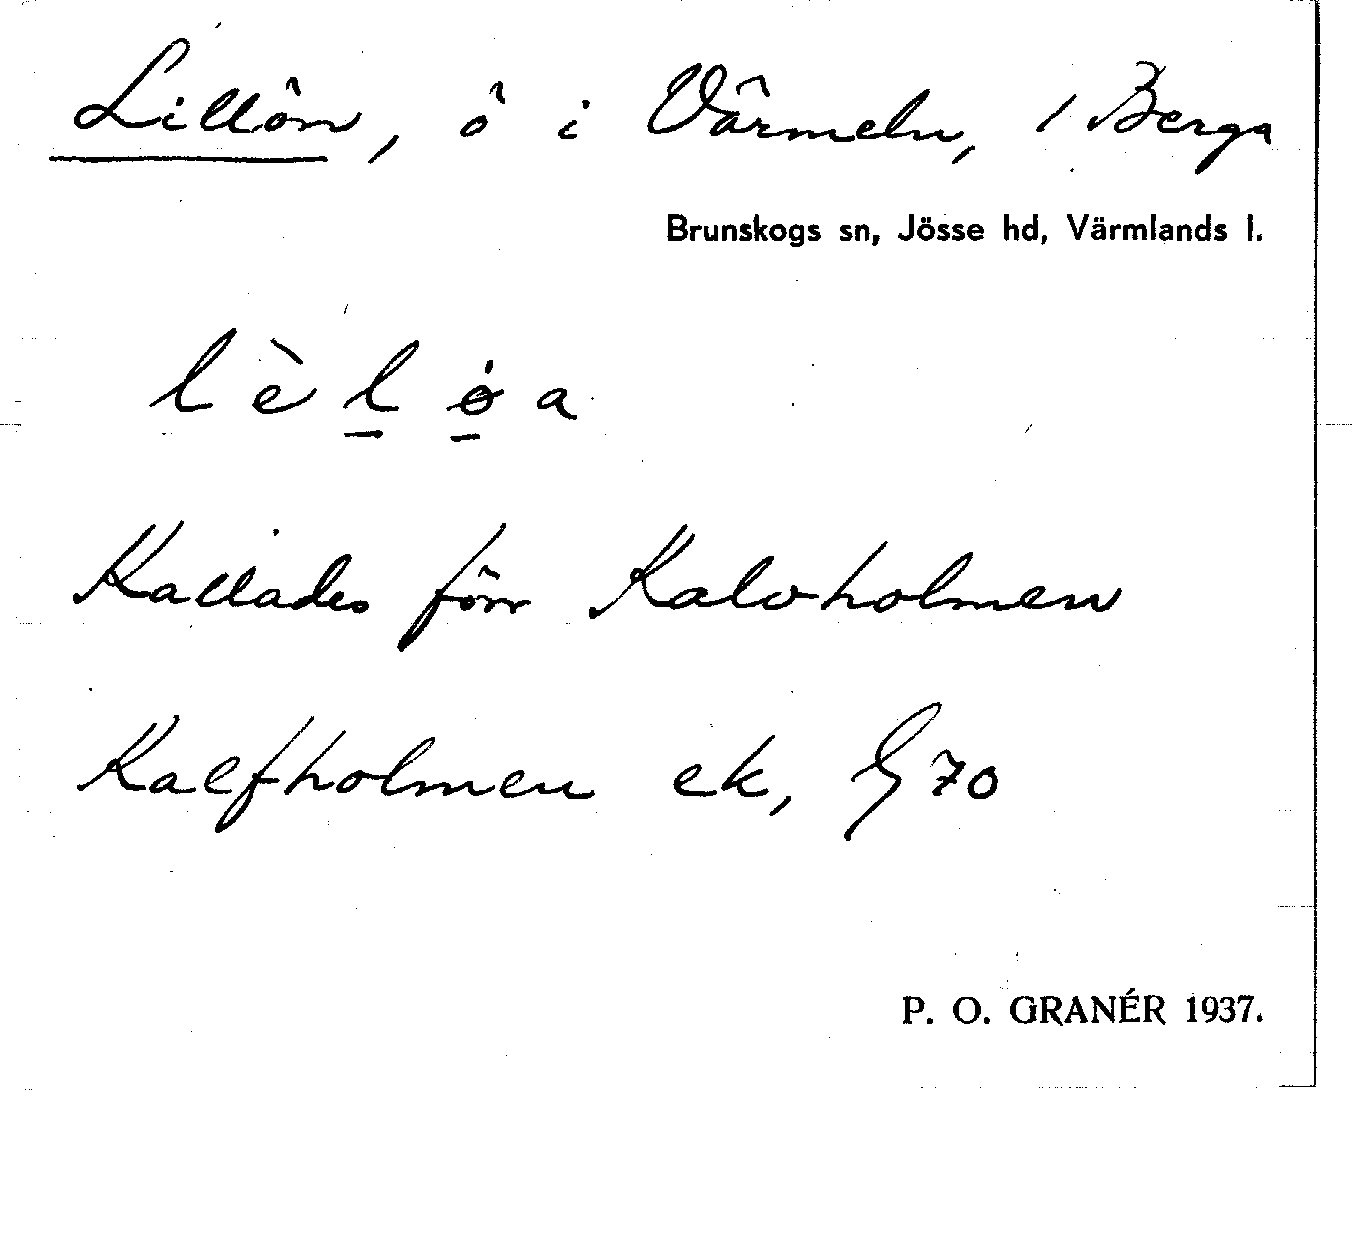 Lillön, ö i Värmeln, / Berga
Brunskogs sn, Jösse hd, Värmlands l.
l è l ø a
Kallades förr Kalvholmen
Kalfholmen ek, G 70
P. O. GRANÉR 1937.